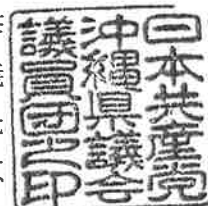 日本共産党
沖縄県議会
議員団之印